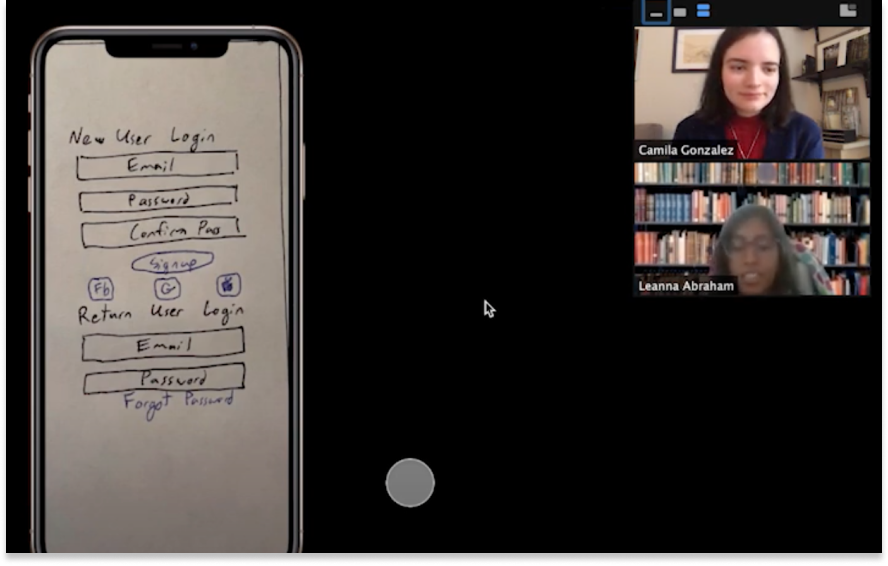 New User Login
Email
Password
Confirm Pass
Signup
Fb G
Return User Login
Email
Password
Forgot Password
Camila Gonzalez
Leanna Abraham